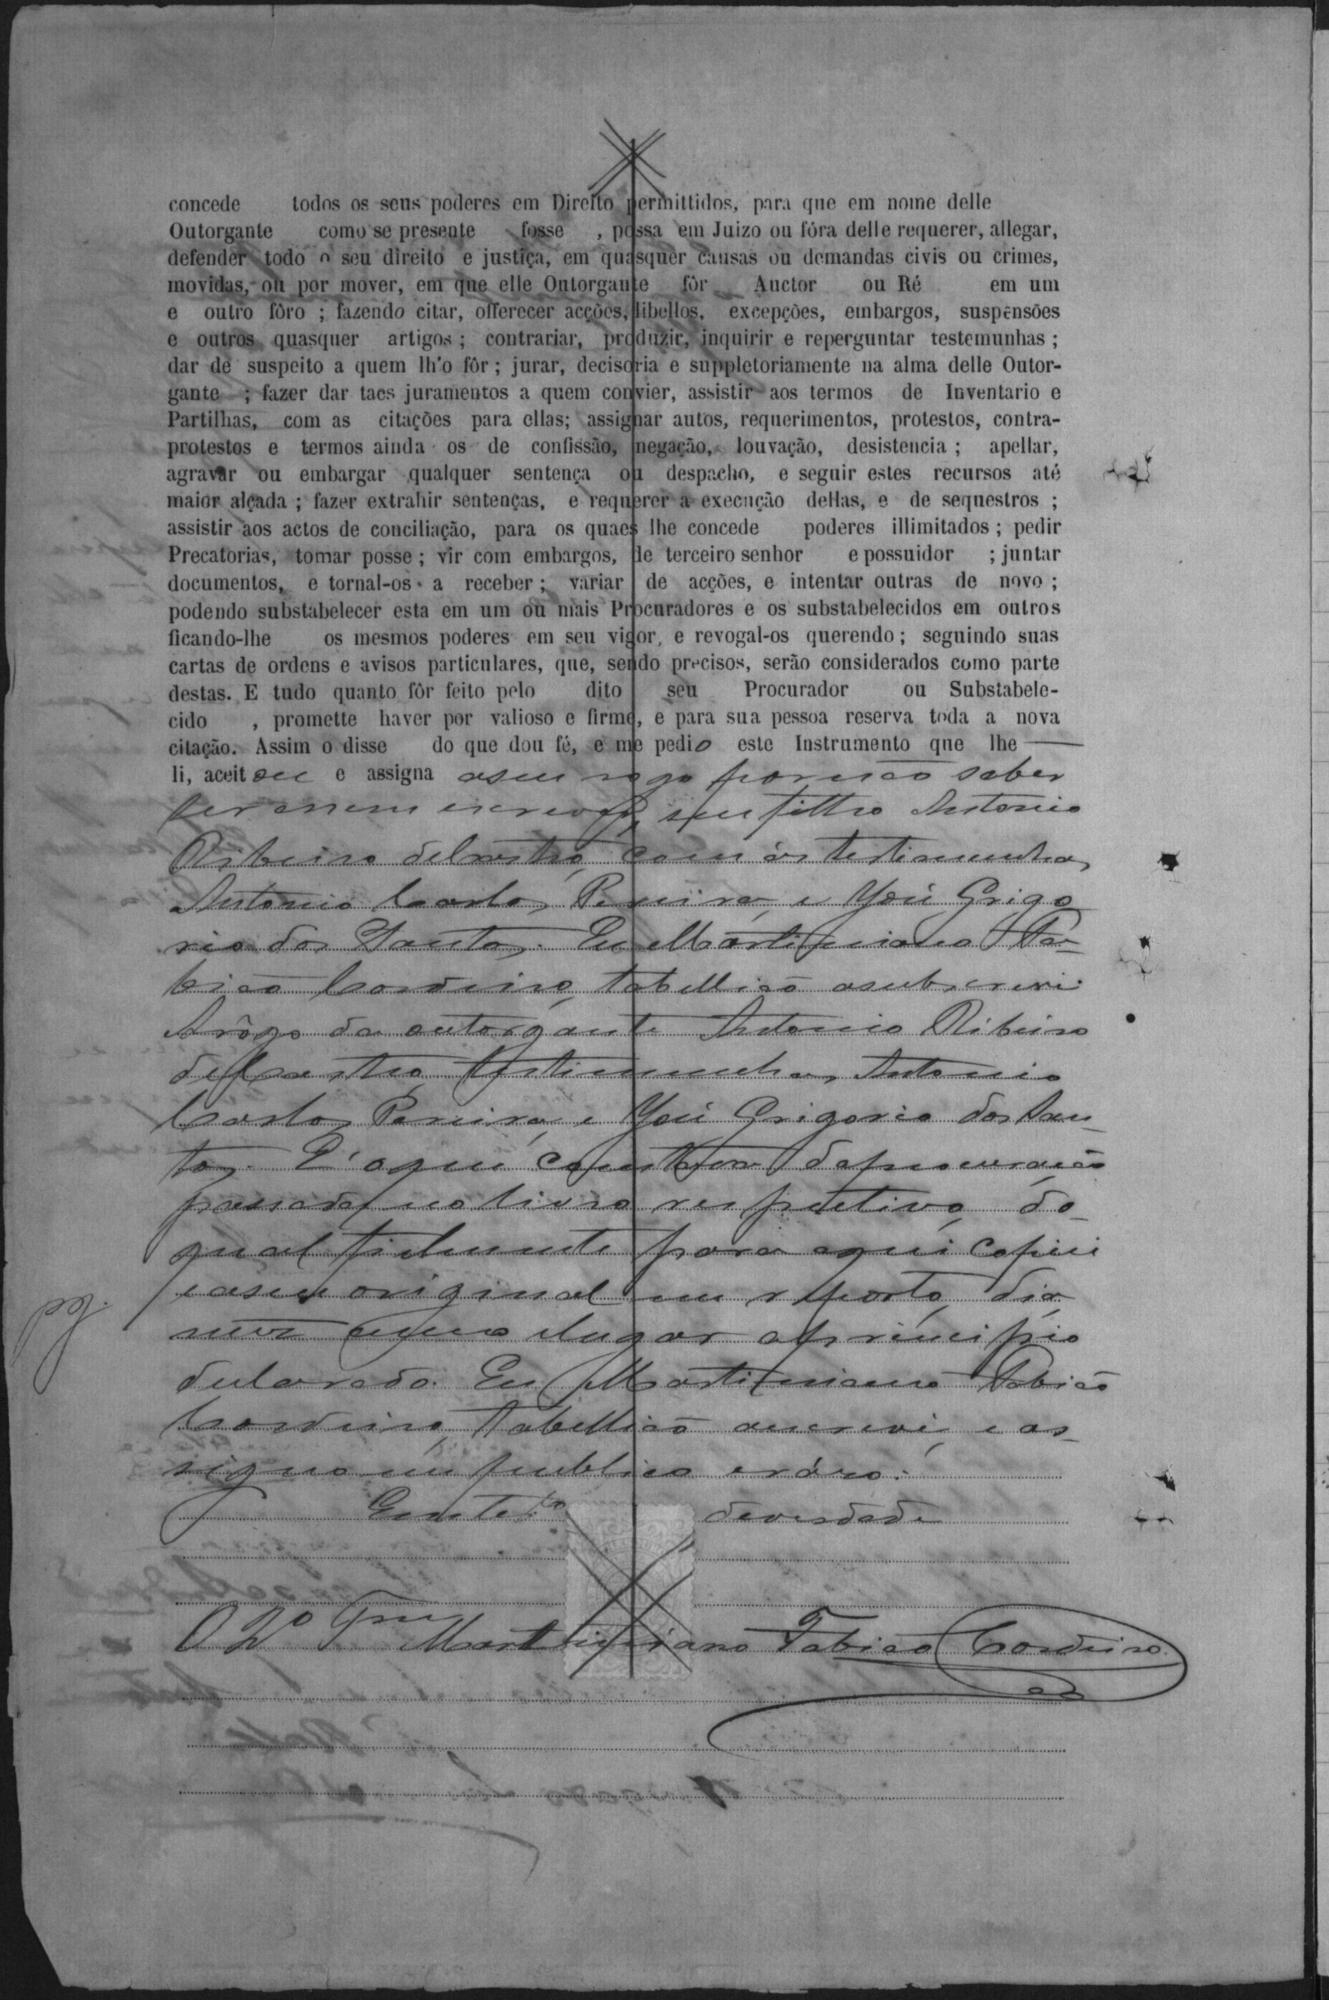 concede todos os seus poderes em Direito permittidos, para que em nome delle
Outorgante como se presente fosse , possa em Juizo ou fóra delle requerer, allegar,
defender todo o seu direito e justiça, em quasquer causas ou demandas civis ou crimes,
movidas, ou por mover, em que elle Outorgante fôr Auctor ou Ré em um
e outro fôro ; fazendo citar, offerecer acções, libellos, excepções, embargos, suspensões
e outros quasquer artigos ; contrariar, produzir, inquirir e reperguntar testemunhas ;
dar de suspeito a quem lh'o fôr ; jurar, decisoria e suppletoriamente na alma delle Outor-
gante ; fazer dar taes juramentos a quem convier, assistir aos termos de Inventario e
Partilhas, com as citações para ellas; assignar autos, requerimentos, protestos, contra-
protestos e termos ainda os de confissão, negação, louvação, desistencia ; apellar,
agravar ou embargar qualquer sentença ou despacho, e seguir estes recursos até
maior alçada ; fazer extrahir sentenças, e requerer a execução dellas, e de sequestros ;
assistir aos actos de conciliação, para os quaes lhe concede poderes illimitados ; pedir
Precatorias, tomar posse ; vir com embargos, de terceiro senhor e possuidor ; juntar
documentos, e tornal-os a receber ; variar de acções, e intentar outras de novo ;
podendo substabelecer esta em um ou mais Procuradores e os substabelecidos em outros
ficando-lhe os mesmos poderes em seu vigor, e revogal-os querendo ; seguindo suas
cartas de ordens e avisos particulares, que, sendo precisos, serão considerados como parte
destas. E tudo quanto fôr feito pelo dito seu Procurador ou Substabele-
cido , promette haver por valioso e firme, e para sua pessoa reserva toda a nova
citação. Assim o disse do que dou fé, e me pedio este Instrumento que lhe
li, aceitou e assigna aseu rogo por não saber
ler nem escrever, seu filho Antonio
Ribeiro deCastro, com as testimunhas
Antonio Carlos Pereira, e José Grigo
rio dos Santos. Eu Martiniano Fa-
bião Cordeiro, tabellião asubscrevi.
Arôgo da outorgante Antonio Ribeiro
deCastro, testimunhas, Antonio
Carlos Pereira, e José Grigorio dos San-
tos. E' oque constava daprocuração
passada no livro respectivo, do
qual fielmente para aqui copiei
easeu original me reporto,
em lugar aprincipio
declarado. Eu Martiniano Fabião
Cordeiro, tabellião escrevi, e as-
signo em publico eráso.
Emtes.to deverdade
O Martiniano Fabião Cordeiro